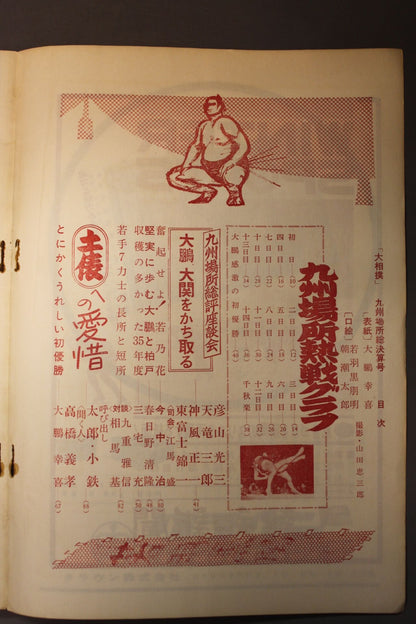 「大相撲」 九州場所総決算号 目次
（表紙）大鵬幸喜
（口絵）若羽黒朋明
朝潮太郎
撮影・山田恵三郎
九州場所熱戦グラフ
初日
二日目
三日目
四日目
五日目
六日目
七日目
八日目
九日目
十日目
十一日目
十二日目
十三日目
十四日目
千秋楽
大鵬感激の初優勝
九州場所総評座談会
大鵬 大関をかち取る
彦山光三
天竜三郎
神風正一
東富士錦一
（司会）江馬盛
(41)
奮起せよ!若乃花
今中治
堅実に歩む大鵬と柏戸
春日野清隆
収穫の多かった35年度
三宅充
若手7力士の長所と短所
対談
九重雅信
相馬基
土俵への愛惜
呼び出し
太郎・小鉄
（聞く人）
高橋義孝
とにかくうれしい初優勝
大鵬幸喜